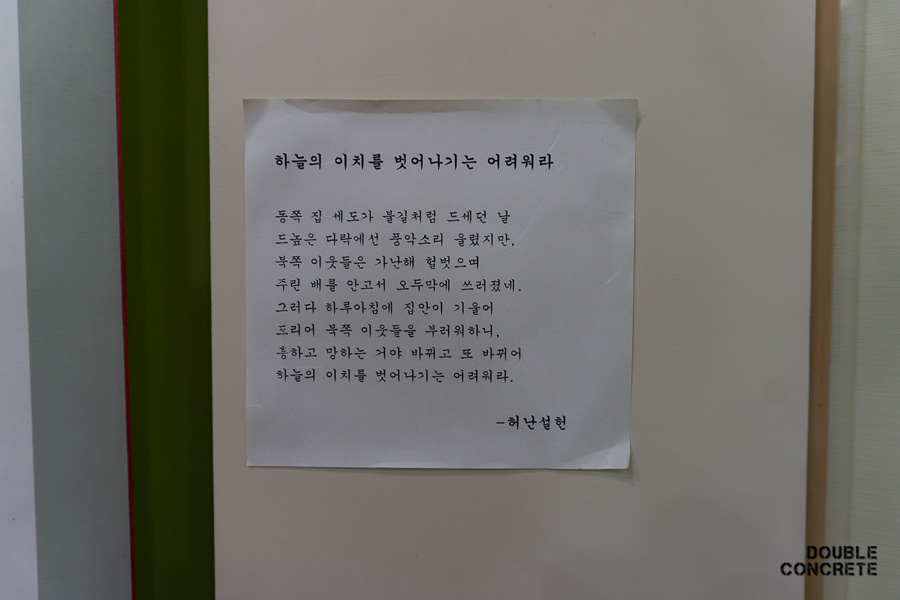 하늘의 이치를 벗어나기는 어려워라
동쪽 집 세도가 불길처럼 드세던 날
드높은 다락에선 풍악소리 울렸지만,
북쪽 이웃들은 가난해 헐벗으며
주린 배를 안고서 오두막에 쓰러졌네.
그러다 하루아침에 집안이 기울어
도리어 북쪽 이웃들을 부러워하니,
흥하고 망하는 거야 바뀌고 또 바뀌어
하늘의 이치를 벗어나기는 어려워라.
-허난설헌
DOUBLE
CONCRETE